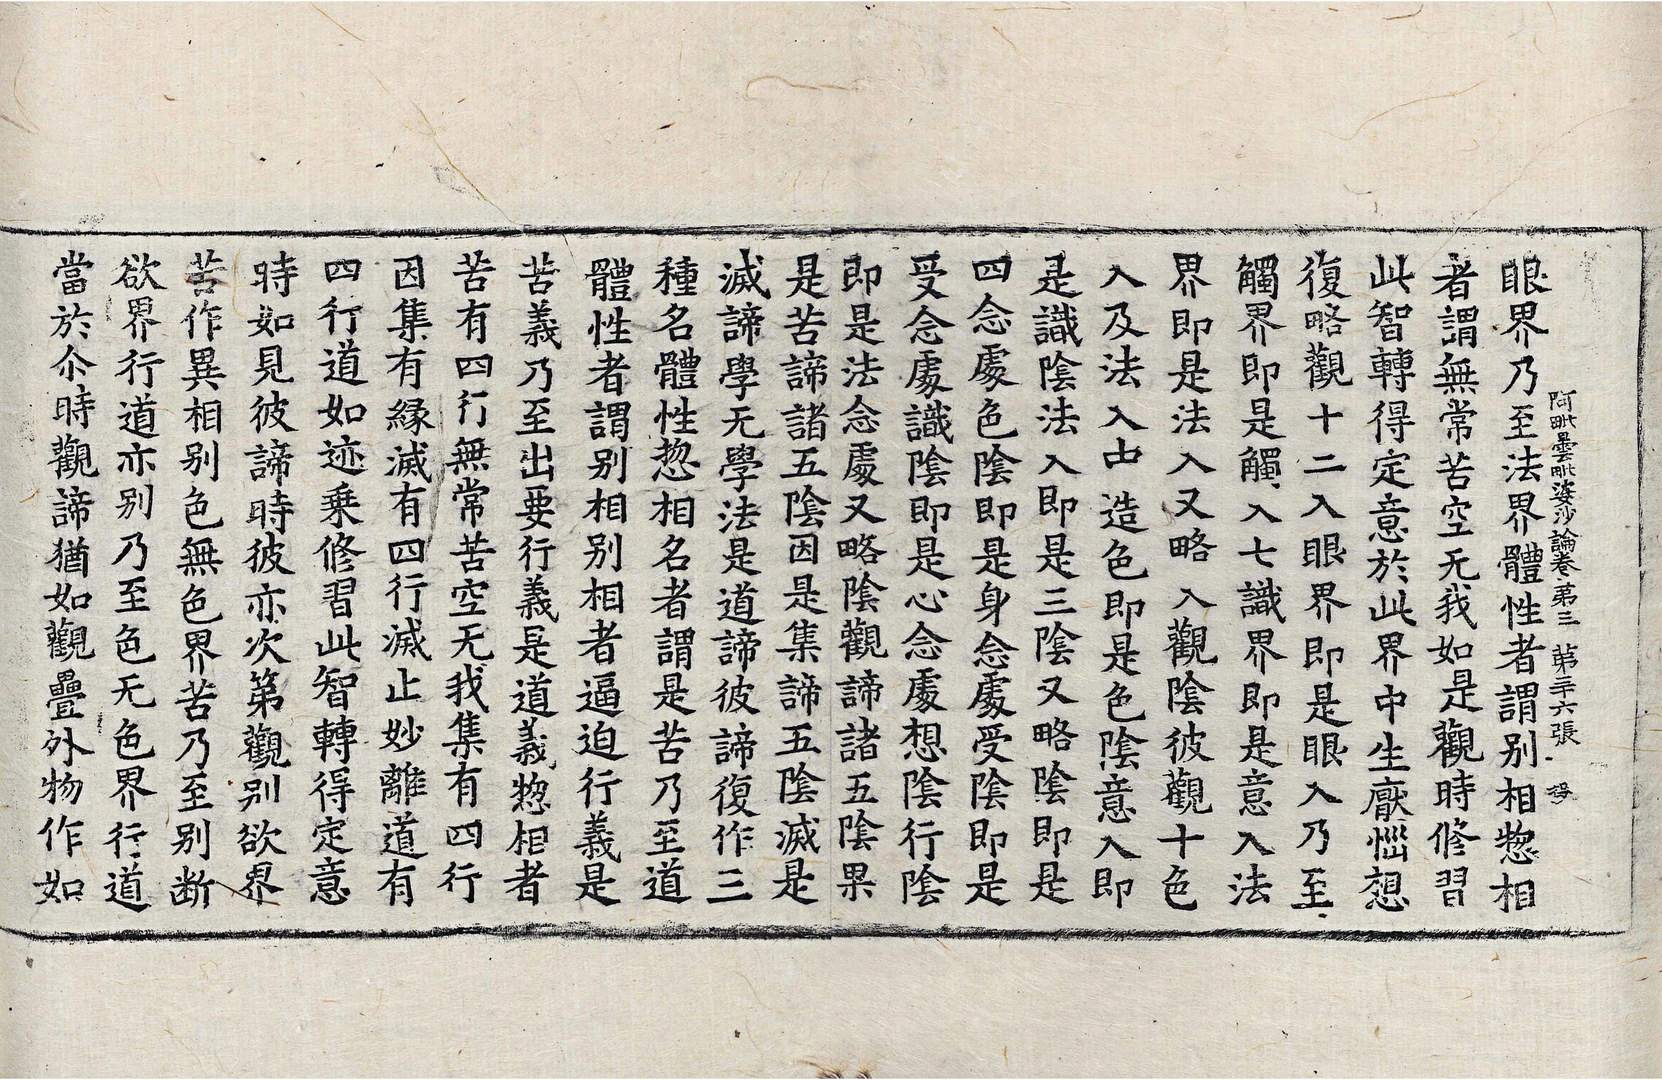 阿毗曇毗婆沙論卷第三　第三十六張　𢎞
眼界乃至法界體性者謂别相揔相
者謂無常苦空无我如是觀時修習
此智轉得定意於此界中生厭惱想
復略觀十二入眼界即是眼入乃至
觸界即是觸入七識界即是意入法
界即是法入又略入觀陰彼觀十色
入及法入中造色即是色陰意入即
是識陰法入即是三陰又略陰即是
四念處色陰即是身念處受陰即是
受念處識陰即是心念處想陰行陰
即是法念處又略陰觀諦諸五陰果
是苦諦諸五陰因是集諦五陰滅是
滅諦學无學法是道諦彼諦復作三
種名體性揔相名者謂是苦乃至道
體性者謂别相别相者逼迫行義是
苦義乃至出要行義是道義揔相者
苦有四行無常苦空无我集有四行
因集有緣滅有四行滅止妙離道有
四行道如迹乘修習此智轉得定意
時如見彼諦時彼亦次第觀别欲界
苦作異相别色無色界苦乃至别断
欲界行道亦别乃至色无色界行道
當於尒時觀諦猶如觀疊外物作如